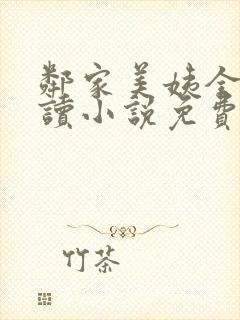 鄰家美姨全
讀小說免費
竹茶